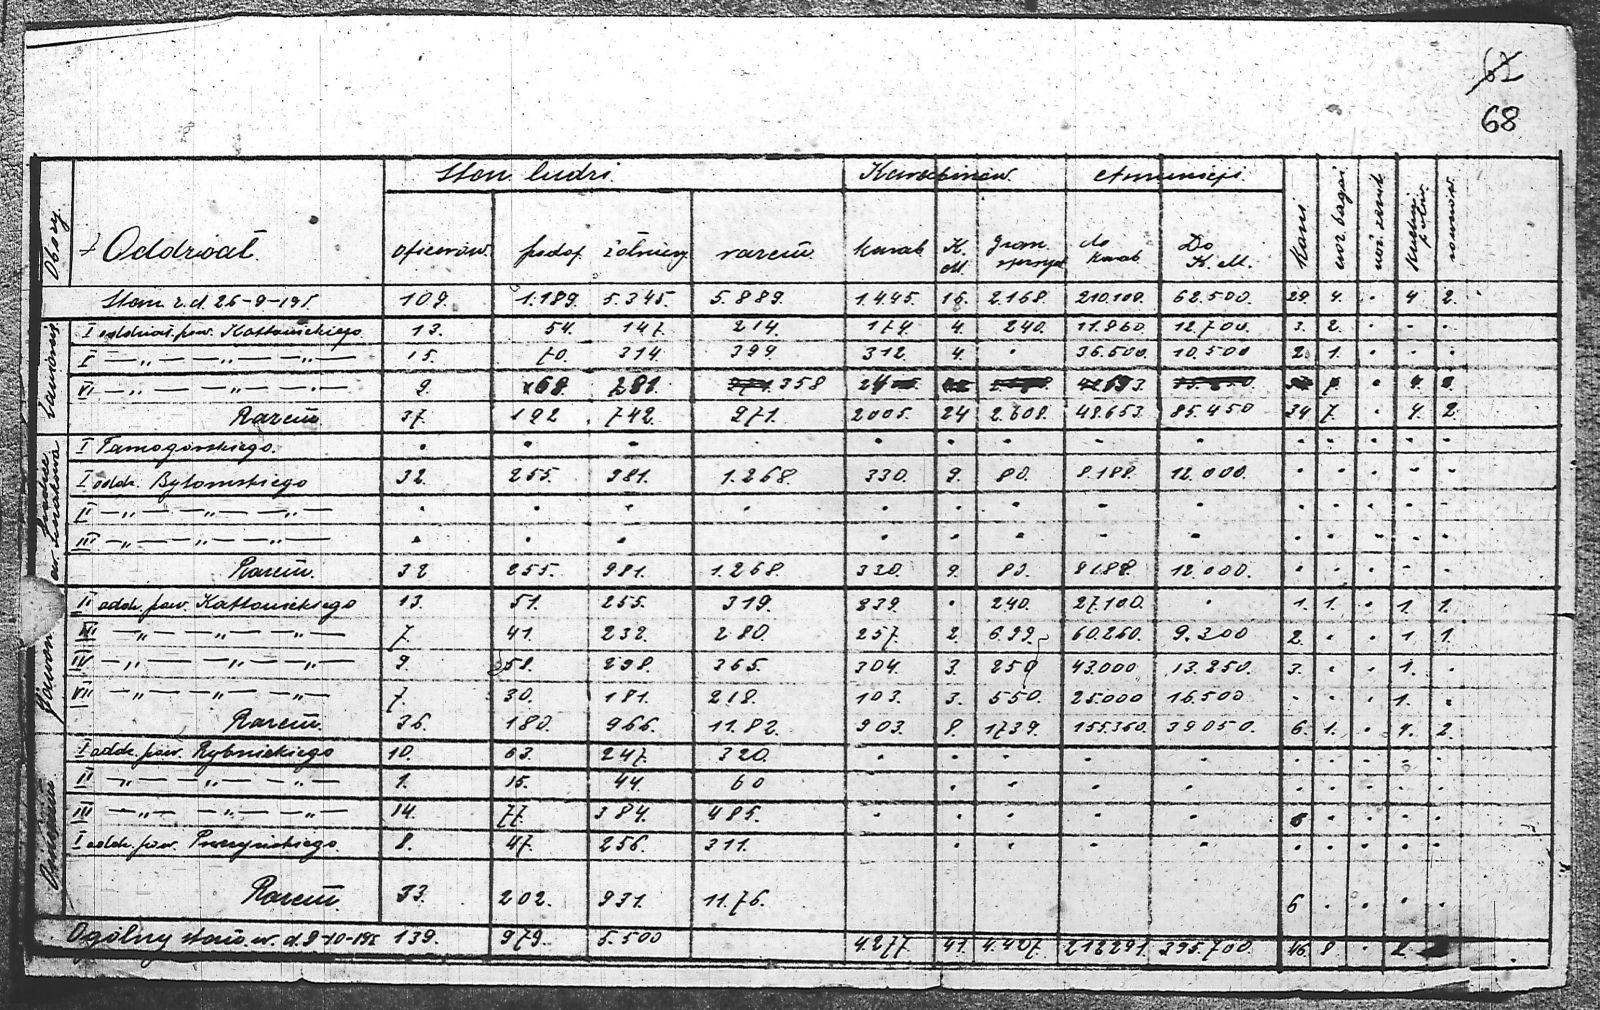 68
Stan ludzi Karabinów Amunicji
Obozy. Oddział oficerów podof. żołnierzy razem karab. K. M. gran. do karab. Do K. M. Koni woz. bagaż
Stan z d. 26-9-19 109. 1.189. 5.345. 5.889. 1.445. 16. 2.168. 210.100. 62.500. 29. 4. . 4. 2.
I oddział pow. Kattowickiego 13. 54. 147. 214. 174. 4. 240. 11.960. 12.700. 3. 2. . . .
I —„— —„— —„— 15. 70. 314. 399. 312. 4. . 36.500. 10.500 2. 1. . . .
VI —„— —„— —„— 9. 68. 281. 358
Razem 37. 192. 742. 971. 2005. 24. 2.608. 48.653. 85.450 34. 7. . 4. 2.
I Tarnogórskiego. . . . . . . . . . . . . . .
I oddz. Bytomskiego 32. 255. 981. 1.268. 330. 9. 80. 9.188. 12.000. . . . . .
II —„— —„— —„— . . . . . . . . . . . . . .
III —„— —„— —„— . . . . . . . . . . . . .
Razem. 32 255. 981. 1.268. 330. 9. 80. 9188. 12.000. . . . . .
II oddz. pow. Kattowickiego 13. 51. 255. 319. 839. . 240. 27.100. . 1. 1. . 1. 1.
III —„— —„— —„— 7. 41. 232. 280. 257. 2. 699. 60.260. 9.300 2. . . 1. 1.
IV —„— —„— —„— 9. 58. 298. 365. 304. 3. 250 43.000 13.250. 3. . . 1. .
VII —„— —„— —„— 7. 30. 181. 218. 103. 3. 550. 25.000 16.500 . . . 1. .
Razem. 36. 180. 966. 11.82. 903. 8. 1739. 155.360. 39.050. 6. 1. . 4. 2.
I oddz. pow. Rybnickiego 10. 63. 247. 320. . . . . . . . . . .
II —„— —„— —„— 1. 15. 44. 60 . . . . . . . . .
III —„— —„— —„— 14. 77. 384. 485. . . . . . 6 . . . .
I oddz. pow. Pszczyńskiego. 8. 47. 256. 311. . . . . . . . . .
Razem. 33. 202. 931. 11.76. 6 . . . .
Ogólny stan w. d. 9-10-19 139. 979. 5.500 4.277. 41. 4.427. 212291. 395.700. 46. 8. .